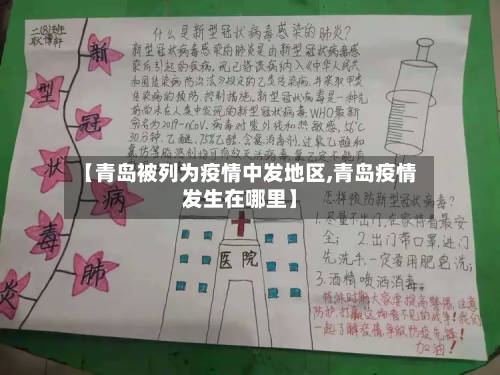 二(8)班
新
型
冠
状
病
毒
肺
炎
什么是新型冠状病毒感染的肺炎?
新型冠状病毒感染的肺炎是由新型冠状病毒感
染后引起的疾病,现已将该病纳入《中华人民共
和国传染病防治法》规定的乙类传染病,并采取甲类
传染病的预防、控制措施。新型冠状病毒是一种先
前尚未在人类中发现的新型冠状病毒,WHO最新
命名为2019-nCoV。病毒对紫外线和热敏感,56℃
30分钟、乙醚、75%乙醇、含氯消毒剂、过氧乙酸和
【青岛被列为疫情中发地区,青岛疫情
发生在哪里】
医院
怎样预防新型冠状病毒?
1.尽量不出门,在家待着最安
全; 2.出门带口罩,进门
先洗手,一定要用肥皂洗;
3.酒精喷洒消毒。
特殊时期大家要提高警惕,注意
防护,打赢这场看不见的战争!我们
一起了解疫情,争做防疫先锋!
加油!